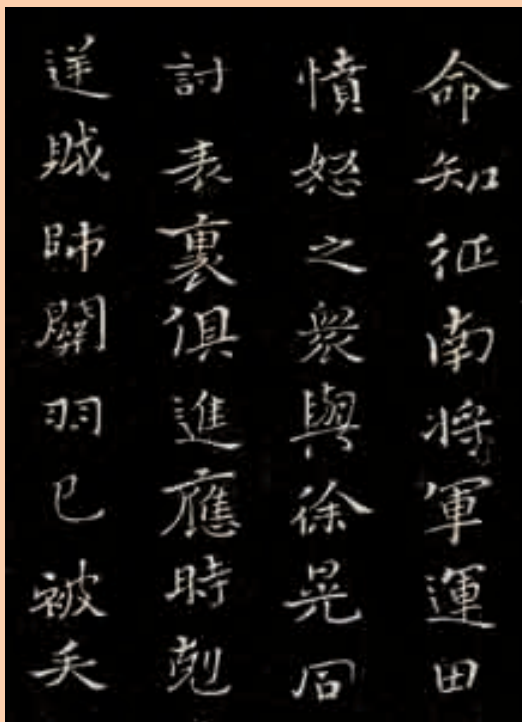 命知征南將軍運田
憤怒之衆與徐晃同
討表裏俱進應時剋
逆賊帥關羽已被矢